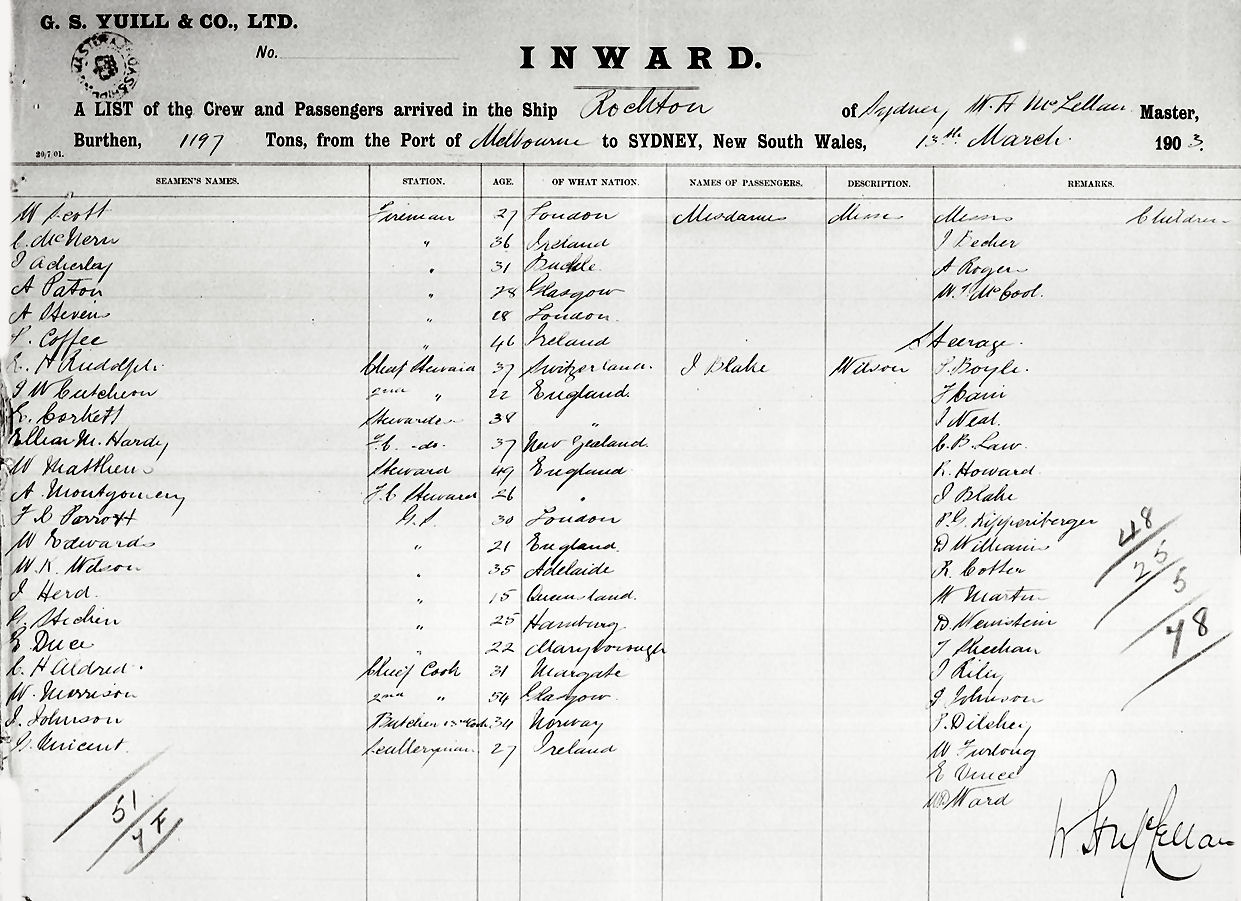 G. S. YUILL & CO., LTD.
No.
INWARD.
A LIST of the Crew and Passengers arrived in the Ship Rockton of Sydney W. H McLellan Master,
Burthen, 1197 Tons, from the Port of Melbourne to SYDNEY, New South Wales, 13th March 1903.
20/7/01.
SEAMEN'S NAMES. STATION. AGE. OF WHAT NATION. NAMES OF PASSENGERS. DESCRIPTION. REMARKS.
W Scott Fireman 27 London Mesdames Misses Messrs Children
C. McNern " 36 Ireland J Becher
J Acherley " 31 A Roger
A Paton " 28 Glasgow W. J McCool.
A Stevens " 18 London
Coffee " 46 Ireland Steerage.
H Rudolph. Chief Steward 37 Switzerland. J Blake Wilson Boyle.
J W Cutcheon 2nd " 22 England. J Cain
Corkett Stewardess 38 " J Neal.
Ellian M. Hardy F.C. do. 37 New Zealand. C. B. Law.
W Matthews Steward 49 England R. Howard
A Montgomery F.C Steward 26 " J Blake
F C Parrott G.S. 30 London P. G. Kippenberger
W Edwards " 21 England. D Williams
W. K. Wilson " 35 Adelaide R. Cotter
J Herd. " 15 Queensland. W Martin
Stechin " 25 Hamburg D. Weinstein
E Duce " 22 Maryborough T Sheehan
C. H Aldred. Chief Cook 31 Margate J Riley
W. Morrison 2nd " 54 Glasgow. J Johnson
J. Johnson Butcher 34 Norway
G. Vincent. Sculleryman 27 Ireland W Furlong
E Vince
Ward
48
25
5
78
51
7 F
W H McLellan